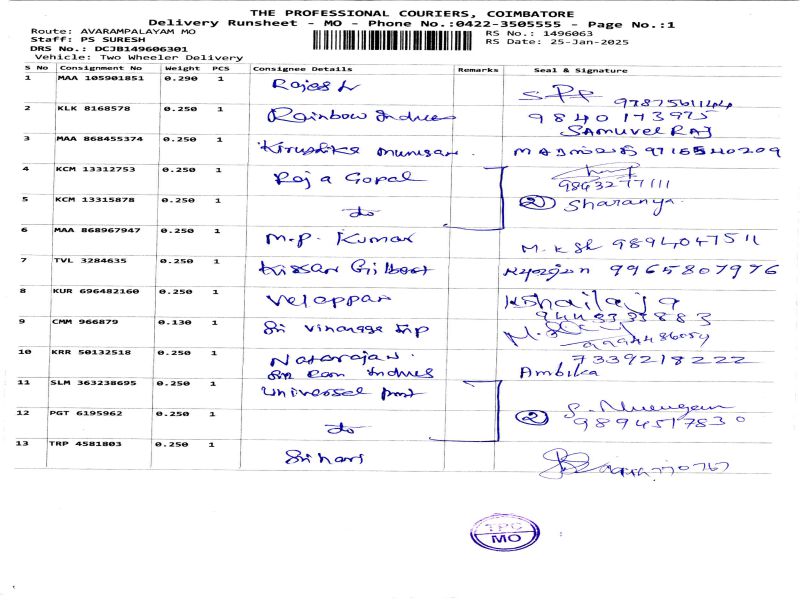 THE PROFESSIONAL COURIERS, COIMBATORE
Delivery Runsheet - MO - Phone No.:0422-3505555 - Page No.:1
Route: AVARAMPALAYAM MO RS No.: 1496063
Staff: PS SURESH RS Date: 25-Jan-2025
DRS No.: DCJB149606301
Vehicle: Two Wheeler Delivery
S No Consignment No Weight PCS Consignee Details Remarks Seal & Signature
1 MAA 105901851 0.290 1 Rajesh SPP 9787561144
2 KLK 8168578 0.250 1 Rainbow Indus 9840173975
SAMUVEL RAJ
3 MAA 868455374 0.250 1 9716540209
4 KCM 13312753 0.250 1 Raja Gopal 9843277111
5 KCM 13315878 0.250 1 do 2 Sharanya
6 MAA 868967947 0.250 1 M.P. Kumar 9894047511
7 TVL 3284635 0.250 1 9965807976
8 KUR 696482160 0.250 1 Velappan Kshailaja
9443335883
9 CMM 966879 0.130 1 Sri
10 KRR 50132518 0.250 1 Natarajan 7339218222
Sri Ram Indus Ambika
11 SLM 363238695 0.250 1 Universal
12 PGT 6195962 0.250 1 do 2 9894517830
13 TRP 4581803 0.250 1 Srihari
TPC
MO